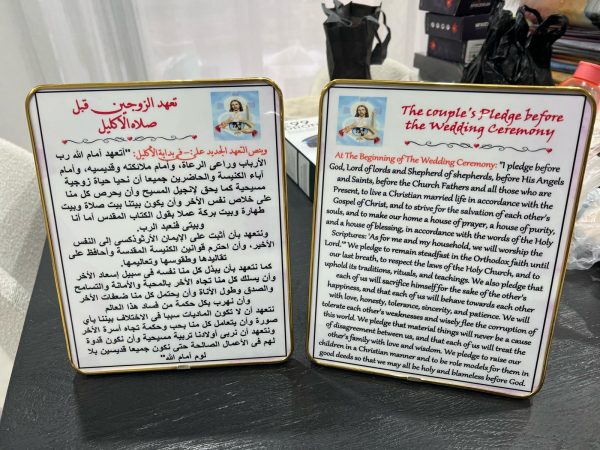 تعهد الزوجين قبل
صلاه الأكليل
وينص التعهد الجديد على:- في بداية الأكليل: "أتعهد أمام الله رب
الأرباب وراعي الرعاة، وأمام ملائكته وقديسيه، وأمام
آباء الكنيسة والحاضرين جميعا أن نحيا حياة زوجية
مسيحية كما يحق لإنجيل المسيح وأن يحرص كل منا
على خلاص نفس الآخر وأن يكون بيتنا بيت صلاة وبيت
طهارة وبيت بركة عملا بقول الكتاب المقدس أما أنا
وبيتي فنعبد الرب.
ونتعهد بأن أثبت على الإيمان الأرثوذكسي إلى النفس
الأخير، وأن احترم قوانين الكنيسة المقدسة وأحافظ على
تقاليدها وطقوسها وتعاليمها.
كما نتعهد بأن يبذل كل منا نفسه في سبيل إسعاد الآخر
وأن يسلك كل منا تجاه الآخر بالمحبة والأمانة والتسامح
والصدق وطول الأناة وأن يحتمل كل منا ضعفات الآخر
وأن نهرب بكل حكمة من فساد هذا العالم
نتعهد أن لا تكون الماديات سببا في الاختلاف بيننا بأي
صورة وأن يتعامل كل منا بحب وحكمة تجاه أسرة الآخر
ونتعهد أن نربى أولادنا تربية مسيحية وأن نكون قدوة
لهم في الأعمال الصالحة حتى نكون جميعا قديسين بلا
لوم أمام الله"
The couple's Pledge before
the Wedding Ceremony
At The Beginning of The Wedding Ceremony: "I pledge before
God, Lord of lords and Shepherd of shepherds, before His Angels
and Saints, before the Church Fathers and all those who are
Present, to live a Christian married life in accordance with the
Gospel of Christ, and to strive for the salvation of each other's
souls, and to make our home a house of prayer, a house of purity,
and a house of blessing, in accordance with the words of the Holy
Scriptures: 'As for me and my household, we will worship the
Lord.'" We pledge to remain steadfast in the Orthodox faith until
our last breath, to respect the laws of the Holy Church, and to
uphold its traditions, rituals, and teachings. We also pledge that
each of us will sacrifice himself for the sake of the other's
happiness, and that each of us will behave towards each other
with love, honesty, tolerance, sincerity, and patience. We will
tolerate each other's weaknesses and wisely flee the corruption of
this world. We pledge that material things will never be a cause
of disagreement between us, and that each of us will treat the
other's family with love and wisdom. We pledge to raise our
children in a Christian manner and to be role models for them in
good deeds so that we may all be holy and blameless before God.